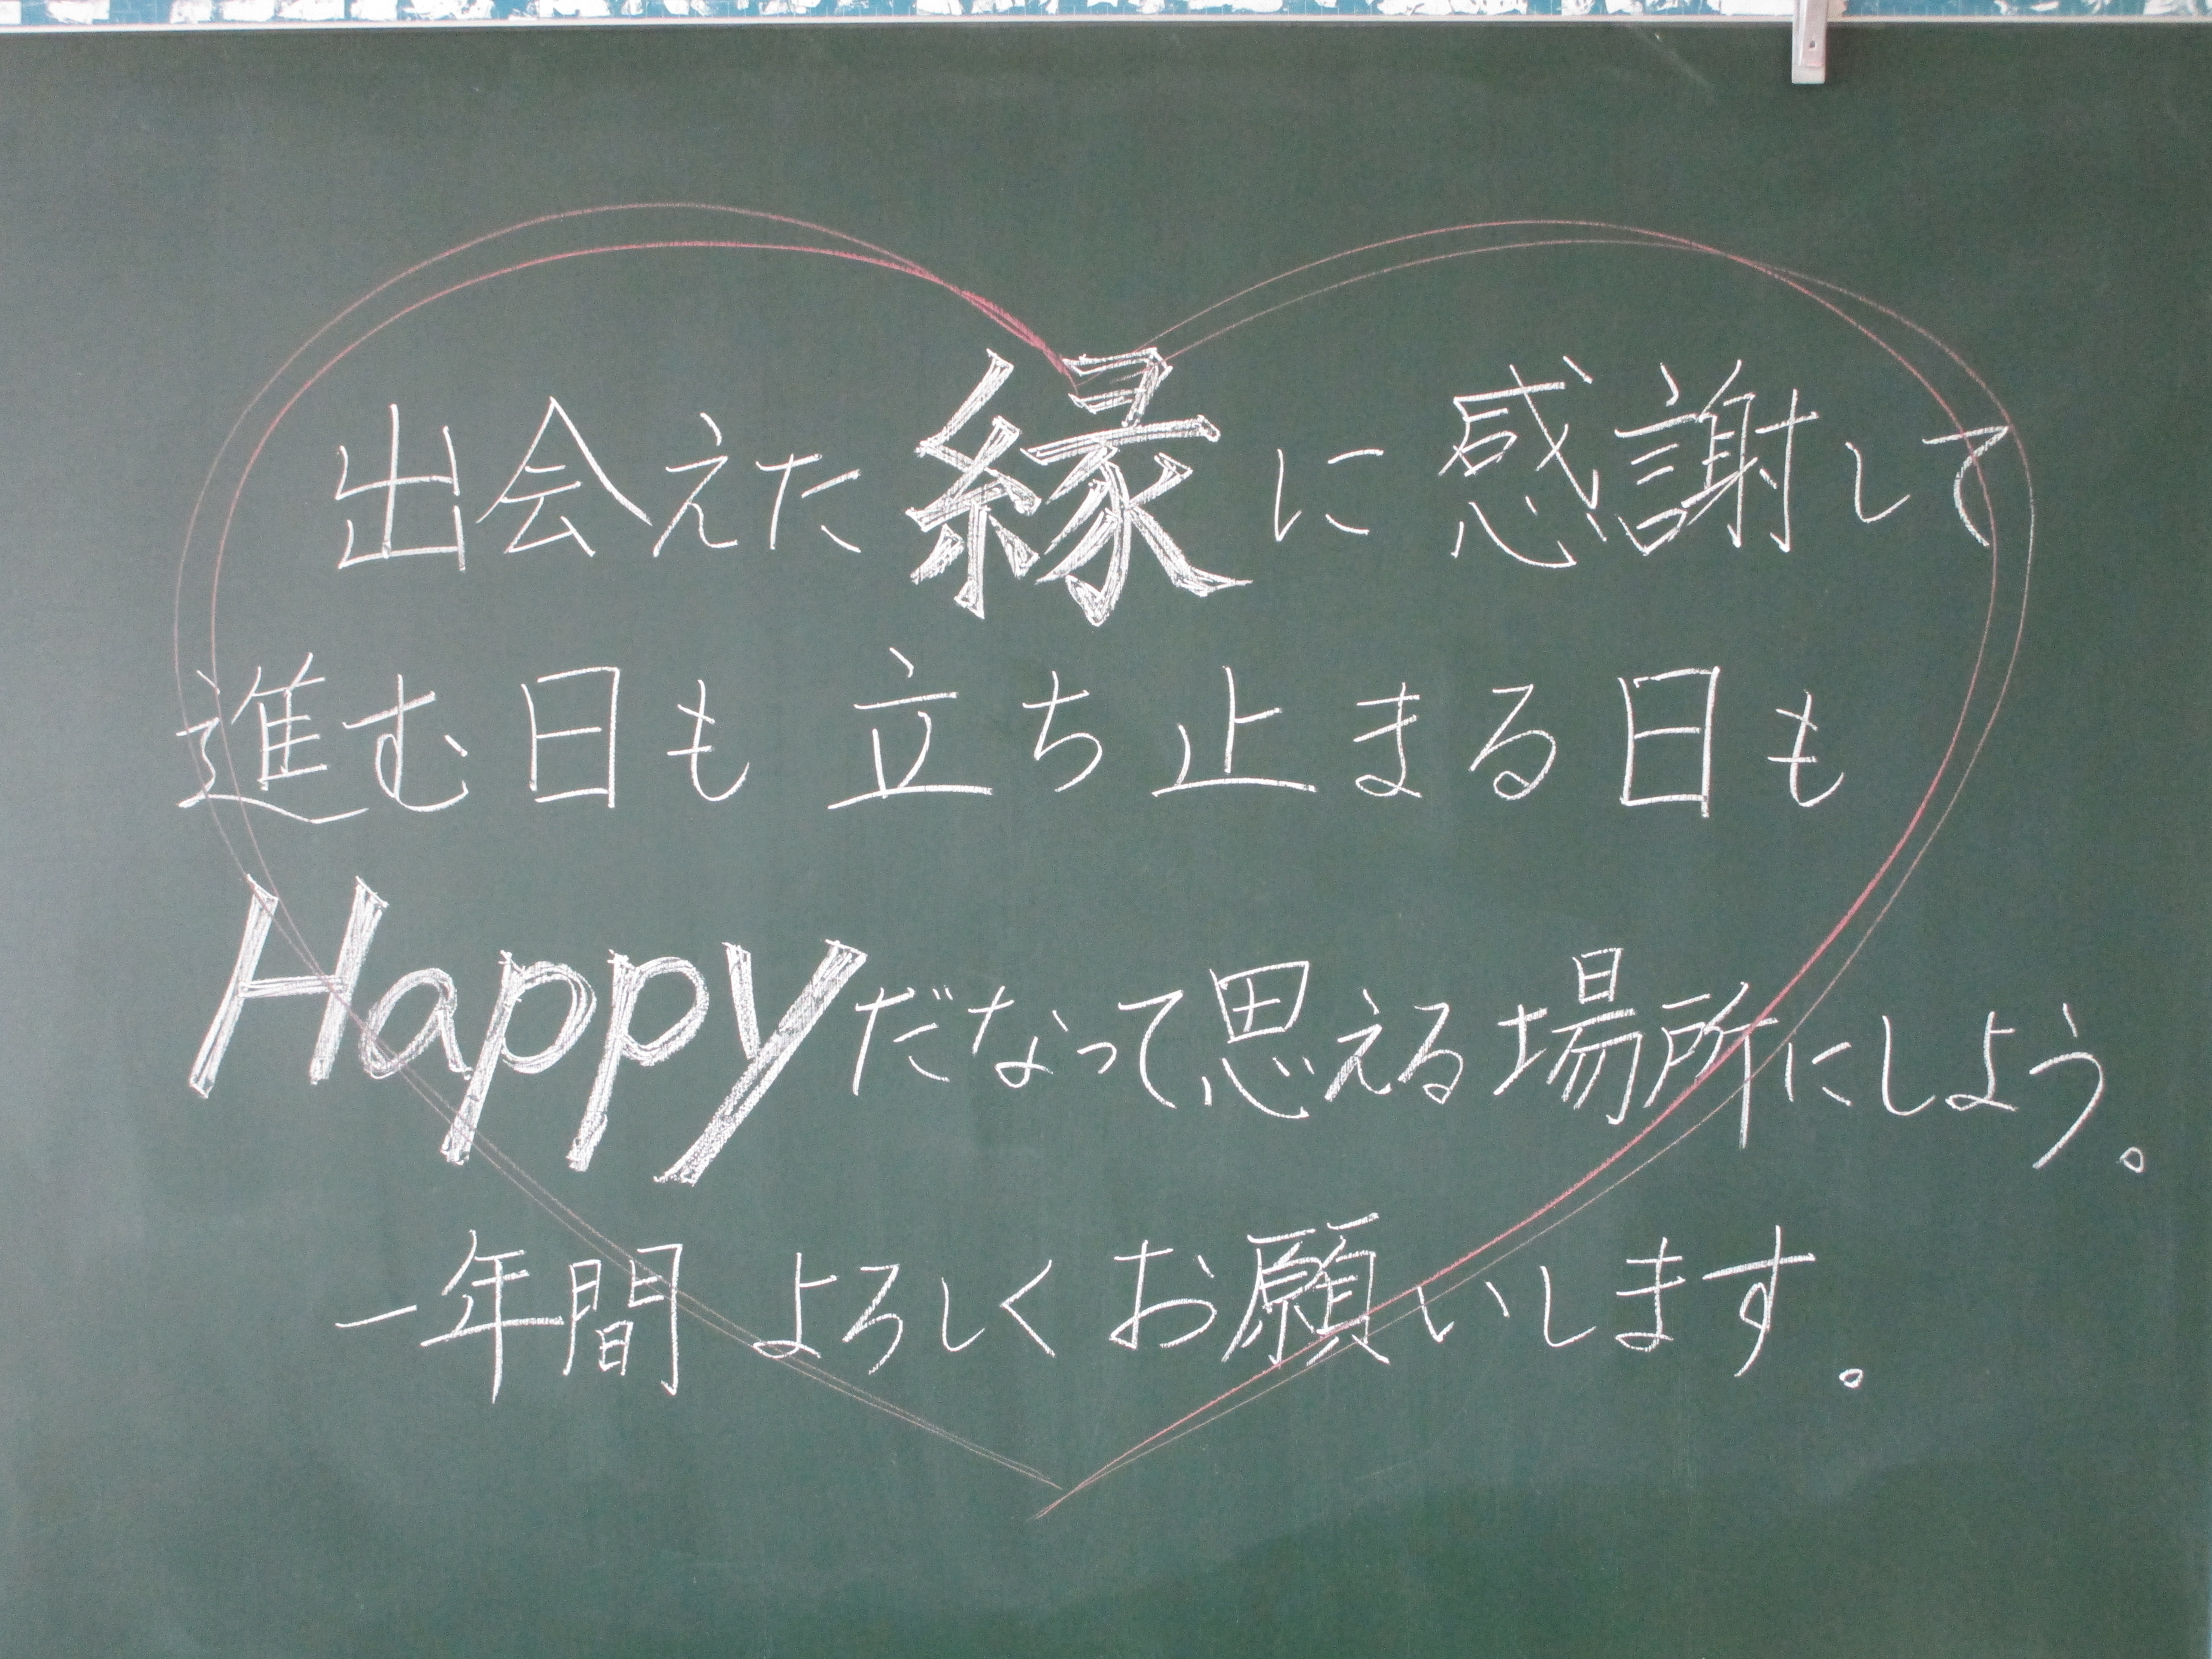 出会えた縁に感謝して
進む日も立ち止まる日も
Happyだなって思える場所にしよう。
一年間よろしくお願いします。